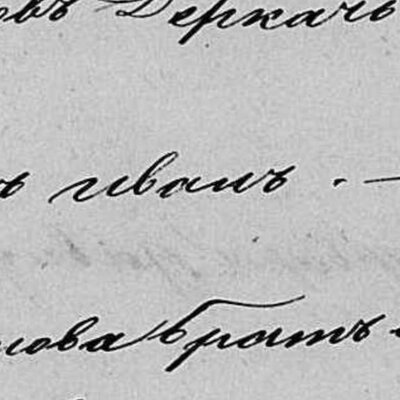 овъ Деркачъ
ъ иванъ. —
лова братъ